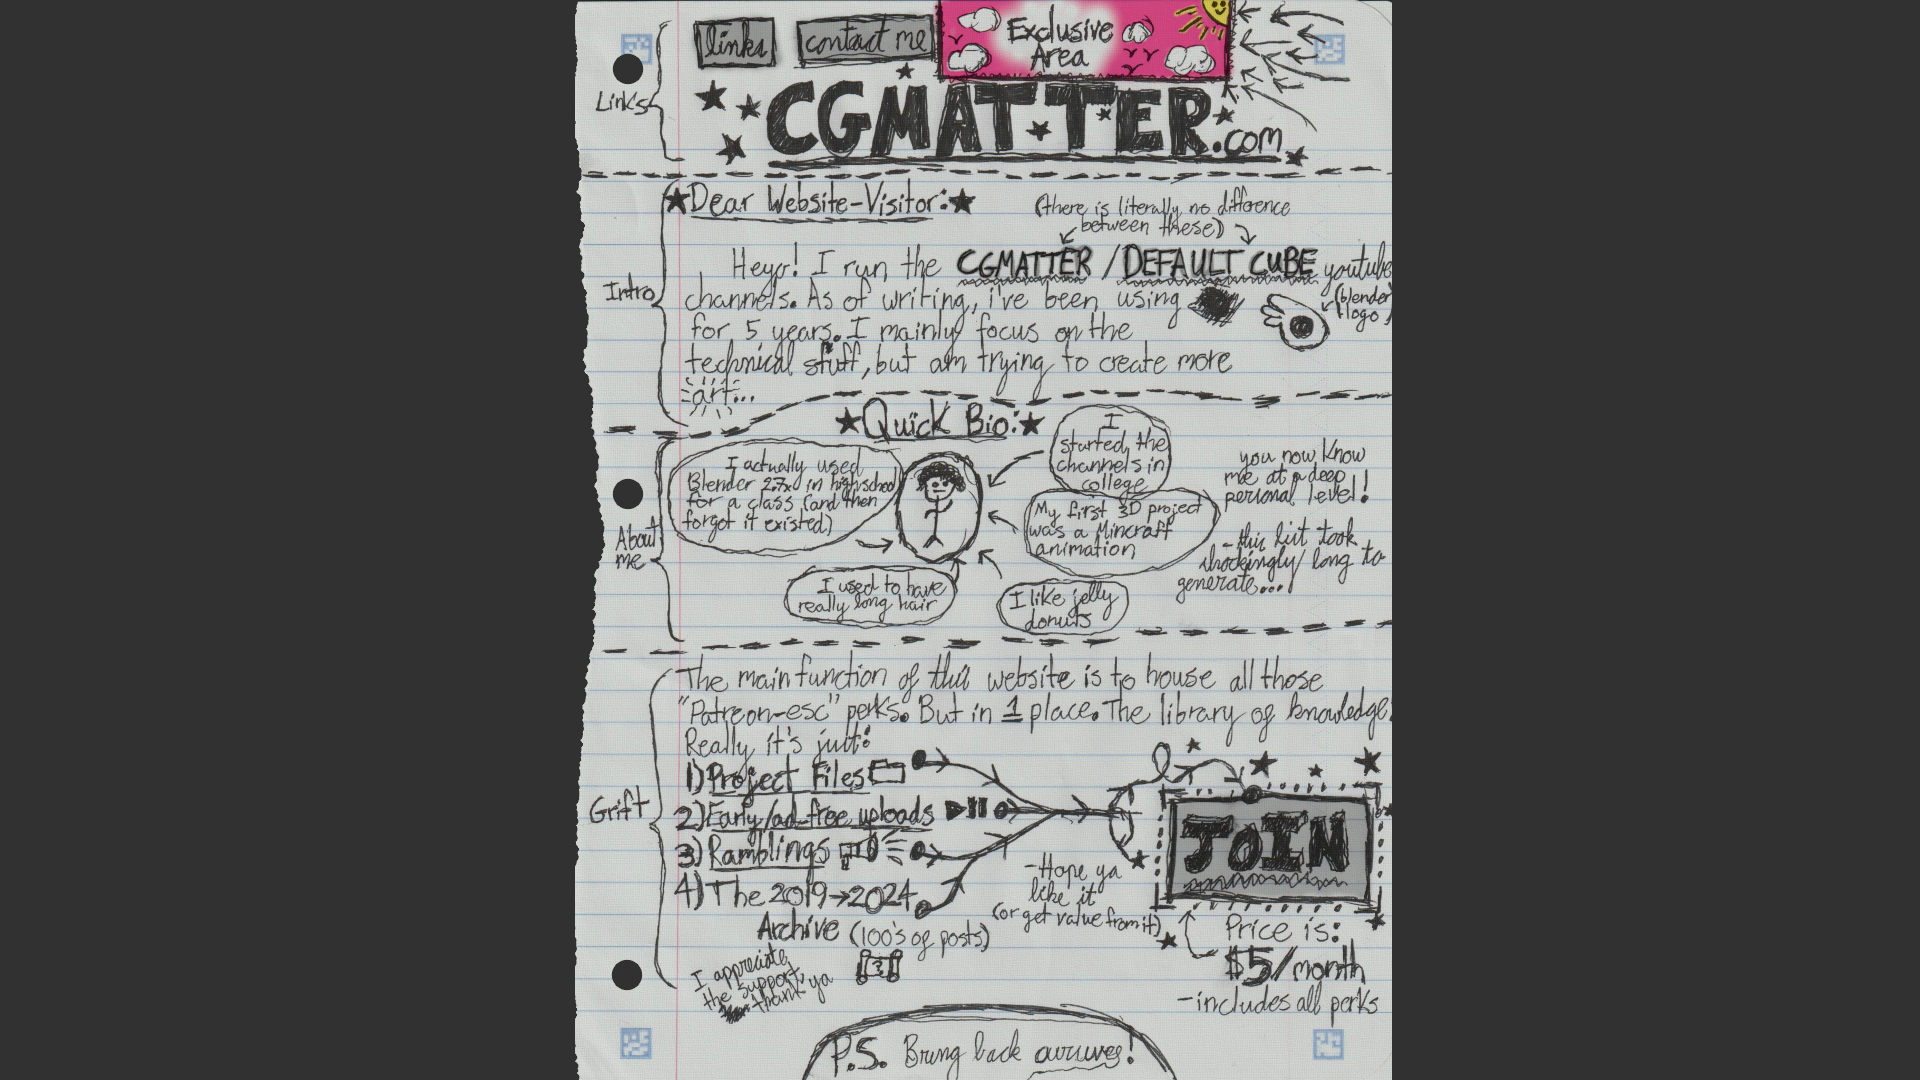 links
contact me
Exclusive
Area
Links
CGMATTER.com
Dear Website-Visitor:
(there is literally no difference
between these)
Intro
Heyo! I run the CGMATTER / DEFAULT CUBE youtube
channels. As of writing, i've been using
(blender
logo)
for 5 years. I mainly focus on the
technical stuff, but am trying to create more
art...
Quick Bio:
About
me
I actually used
Blender 2.7x in highschool
for a class (and then
forgot it existed)
I
started the
channels in
college
My first 3D project
was a Mincraft
animation
I used to have
really long hair
I like jelly
donuts
you now know
me at a deep
personal level!
- this list took
shockingly long to
generate...
Grift
The main function of this website is to house all those
"Patreon-esc" perks. But in 1 place. The library of knowledge.
Really it's just:
1) Project Files
2) Early/ad-free uploads
3) Ramblings
4) The 2019→2024
Archive (100's of posts)
I appreciate
the support,
thank ya
-Hope ya
like it
(or get value from it)
JOIN
Price is:
$5/month
-includes all perks
P.S. Bring back